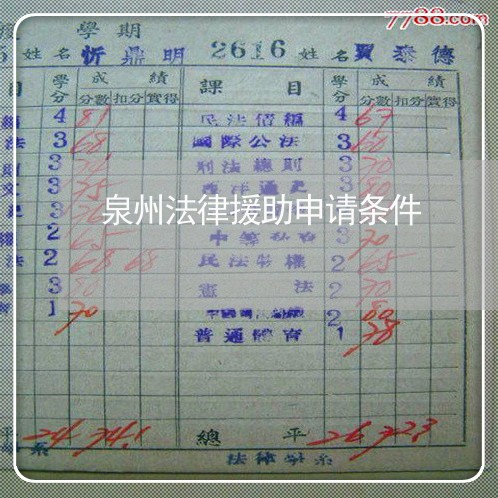 7788.com
學期
姓名 忻鼎明 2616 姓名 賈泰德
目 學分 成績 課目 學分 成績
分數 扣分 實得 分數 扣分 實得
4 81 民法債編 4 67
法 3 68 國際公法 3 60
3 刑法總則 3 70
3 75 西洋通史 3
泉州法律援助申请条件
2 65 3 70
法 2 68 68 民法物權 2 65
3 80 憲法 2 70
1 70 2 80
普通體育 1 78
24 74.1 總平 26 72.3
系 法律學系